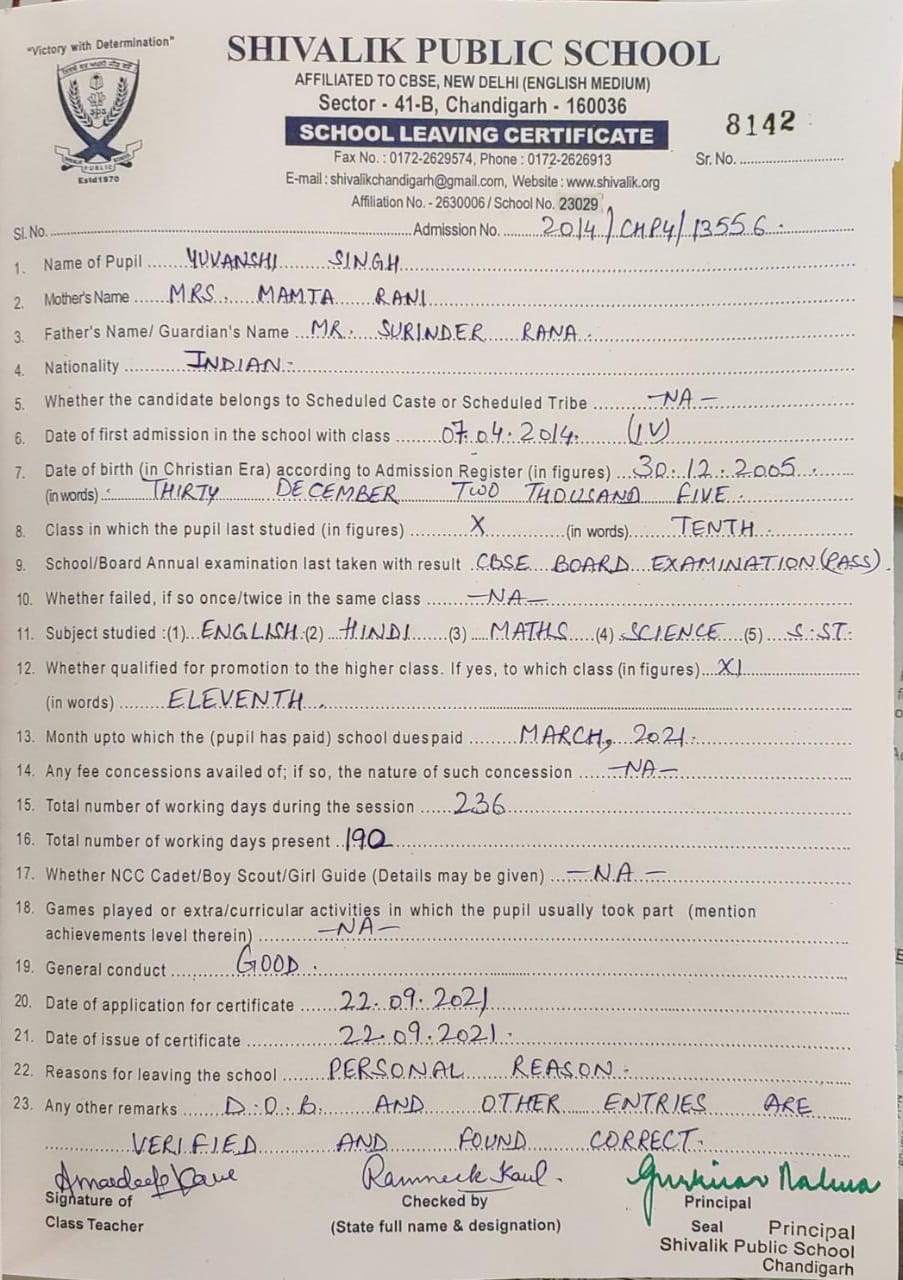 "Victory with Determination"
SHIVALIK PUBLIC SCHOOL
AFFILIATED TO CBSE, NEW DELHI (ENGLISH MEDIUM)
Sector - 41-B, Chandigarh - 160036
SCHOOL LEAVING CERTIFICATE
8142
Fax No. : 0172-2629574, Phone : 0172-2626913
Sr. No. ............................
E-mail : shivalikchandigarh@gmail.com, Website : www.shivalik.org
Estd1970
Affiliation No. - 2630006 / School No. 23029
Sl. No. ............ Admission No. ....... 2014/CHP4/13556.
1. Name of Pupil ..... YUVANSHI SINGH
2. Mother's Name ..... MRS. MAMTA RANI
3. Father's Name/ Guardian's Name ... MR. SURINDER RANA.
4. Nationality ........... INDIAN-
5. Whether the candidate belongs to Scheduled Caste or Scheduled Tribe ........ -NA-
6. Date of first admission in the school with class ........ 07.04.2014. (IV)
7. Date of birth (in Christian Era) according to Admission Register (in figures) ... 30.12.2005.
(in words) THIRTY DECEMBER TWO THOUSAND FIVE.
8. Class in which the pupil last studied (in figures) ......... X ......... (in words) ..... TENTH.
9. School/Board Annual examination last taken with result .CBSE BOARD EXAMINATION (PASS).
10. Whether failed, if so once/twice in the same class ....... -NA-
11. Subject studied :(1)...ENGLISH.(2)...HINDI......(3)....MATHS.....(4).SCIENCE....(5)....S.ST.
12. Whether qualified for promotion to the higher class. If yes, to which class (in figures)...XI
(in words) ........ ELEVENTH.
13. Month upto which the (pupil has paid) school duespaid ......... MARCH, 2021.
14. Any fee concessions availed of; if so, the nature of such concession ..... -NA-
15. Total number of working days during the session ..... 236
16. Total number of working days present ..190
17. Whether NCC Cadet/Boy Scout/Girl Guide (Details may be given) ... -N.A-
18. Games played or extra/curricular activities in which the pupil usually took part (mention
achievements level therein) ......... -NA-
19. General conduct .......... GOOD.
20. Date of application for certificate ...... 22.09.2021
21. Date of issue of certificate .............. 22.09.2021.
22. Reasons for leaving the school ....... PERSONAL REASON.
23. Any other remarks ....... D.O.B. AND OTHER ENTRIES ARE
VERIFIED AND FOUND CORRECT.
Ramneek Kaul.
Signature of
Class Teacher
Checked by
(State full name & designation)
Principal
Seal
Principal
Shivalik Public School
Chandigarh